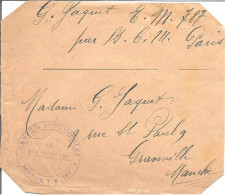 G. Jaquet E. M. 787
par B. C. M. Paris
Madame G. Jaquet
9 rue St Paul
Granville
Manche